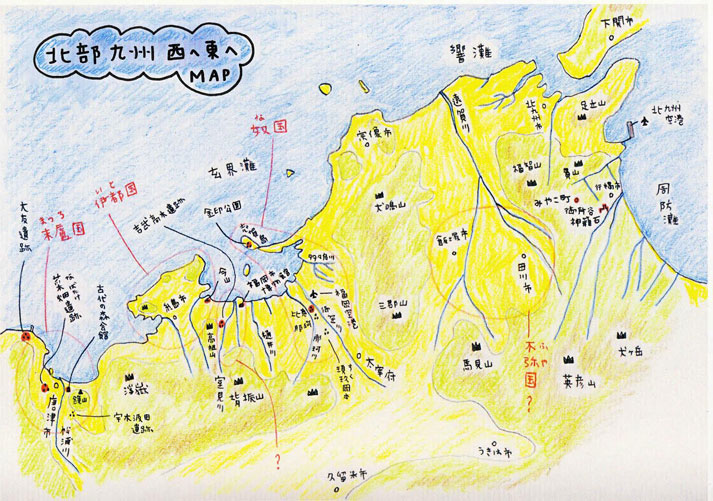 北部九州 西へ東へ
MAP
下関市
響灘
遠賀川
北九州市
足立山
北九州空港
宗像市
福智山
貫山
周防灘
みやこ町
御所谷
神籠石
な
奴国
玄界灘
犬鳴山
飯塚市
田川市
いと
伊都国
まつろ
末盧国
大友遺跡
なばたけ
菜畑遺跡
古代の森会館
吉武高木遺跡
金印公園
志賀島
多々良川
今山
福岡市博物館
福岡空港
糸島市
高祖山
室見川
樋井川
比恵
那珂
那珂川
須玖岡本
太宰府
三郡山
馬見山
ふや
不弥国?
英彦山
犬ヶ岳
浮嶽
背振山
?
鏡山
唐津市
松浦川
宇木汲田遺跡
うきは市
久留米市